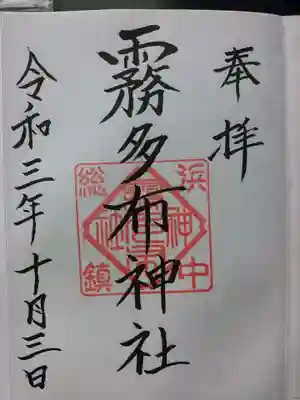 奉拝
霧多布神社
令和三年十月三日
浜中
神社
総鎮